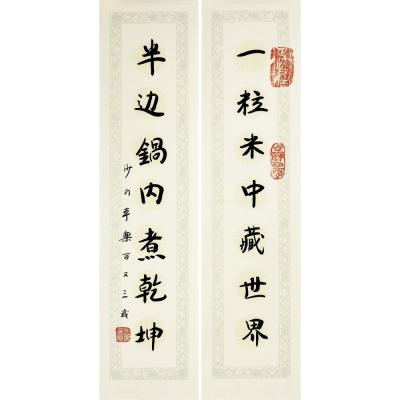 一粒米中藏世界
半边鍋内煮乾坤